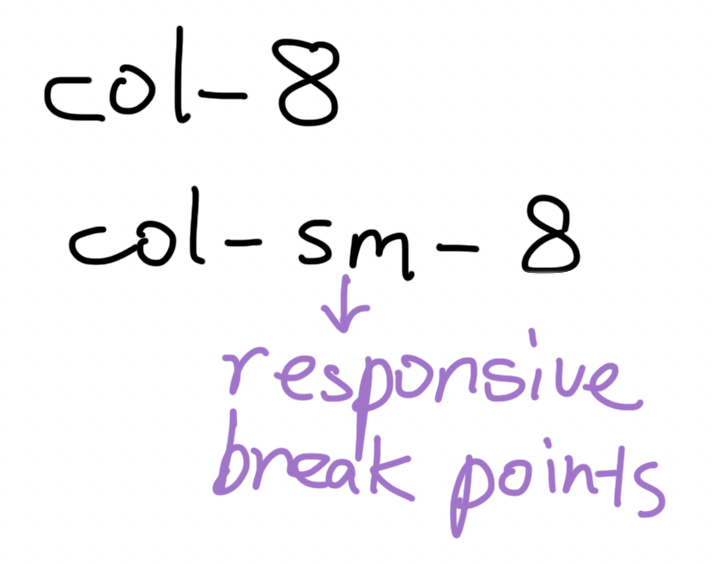 col-8
col-sm-8
responsive
break points